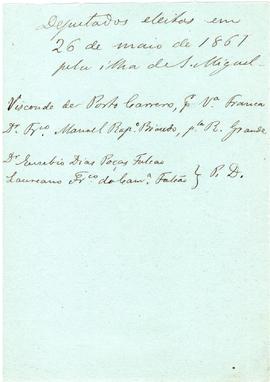 Deputados eleitos em
26 de maio de 1861
pela ilha de S. Miguel
Visconde de Porto Carrero, p. Vª Franca
Dr. Frco. Manuel Rapº. Bicudo, pla R. Grande
Dr. Eusebio Dias Poças Falcão
Laureano Frco. da Camª. Falcão } P. D.